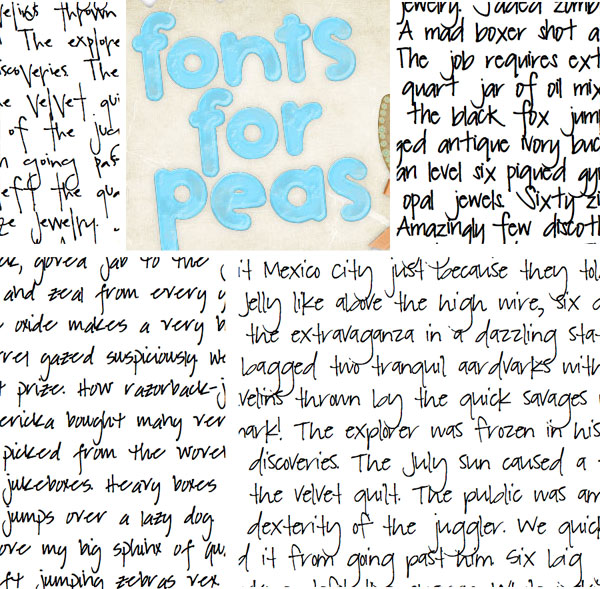 thrown
The explore
discoveries. The
velvet qui
of the jug
going pas
left the qua
jewelry.
fonts
for
peas
jewelry. Jaded zomb
A mad boxer shot a
The job requires ext
quart jar of oil mix
the black fox jump
ged antique ivory buc
an level six piqued gy
opal jewels. Sixty zi
Amazingly few discoth
gored jab to the
and zeal from every
oxide makes a very b
gazed suspiciously we
prize. How razorback-j
ericka bought many ver
picked from the
jukeboxes. Heavy boxes
jumps over a lazy dog
my big sphinx of qu
jumping zebras vex
it Mexico City just because they tol
jelly like above the high wire, six
the extravaganza in a dazzling sta
bagged two tranquil aardvarks with
velins thrown by the quick savages
nark! The explorer was frozen in his
discoveries. The July sun caused a
the velvet quilt. The public was am
dexterity of the juggler. We quick
d it from going past him. Six big